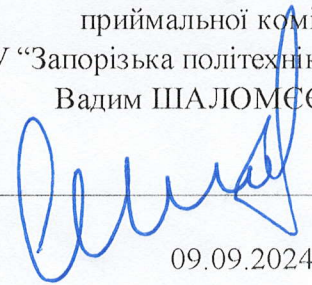 приймальної комі
"Запорізька політехнік
Вадим ШАЛОМЄЄ
09.09.2024